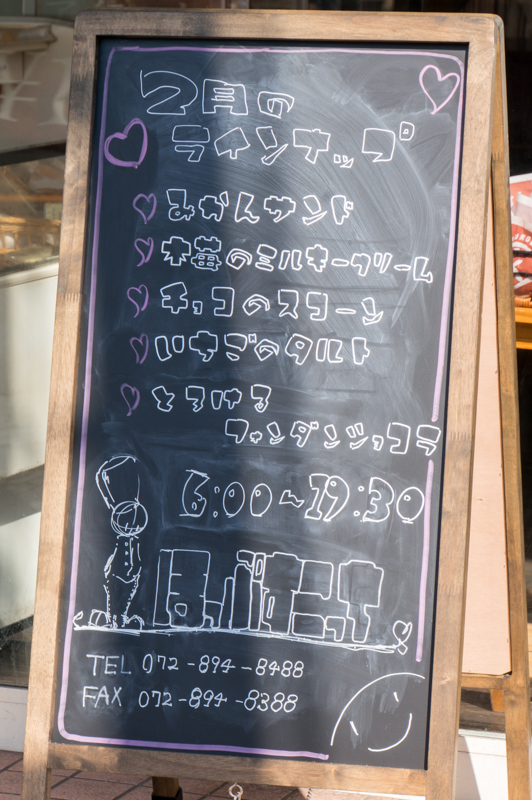 2月の
ラインナップ
みかんサンド
木苺のミルキークリーム
チョコのスコーン
いちごのタルト
とろける
フォンダンショコラ
6:00～19:30
TEL 072-894-8488
FAX 072-894-8388